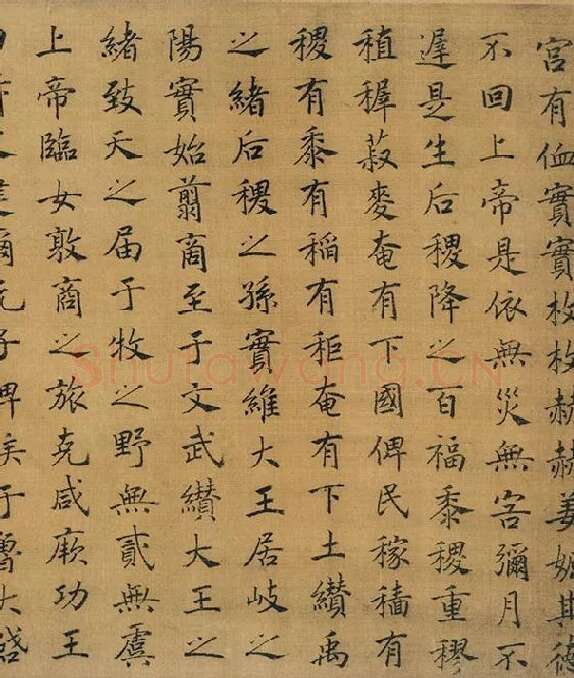 宮有侐實實枚枚赫赫姜嫄其德
不回上帝是依無災無害彌月不
遲是生后稷降之百福黍稷重穋
稙稺菽麥奄有下國俾民稼穡有
稷有黍有稻有秬奄有下土纘禹
之緒后稷之孫實維大王居岐之
陽實始翦商至于文武纘大王之
緒致天之届于牧之野無貳無虞
上帝臨女敦商之旅克咸厥功王
元子俾侯于魯大啓
Shufawang.CN